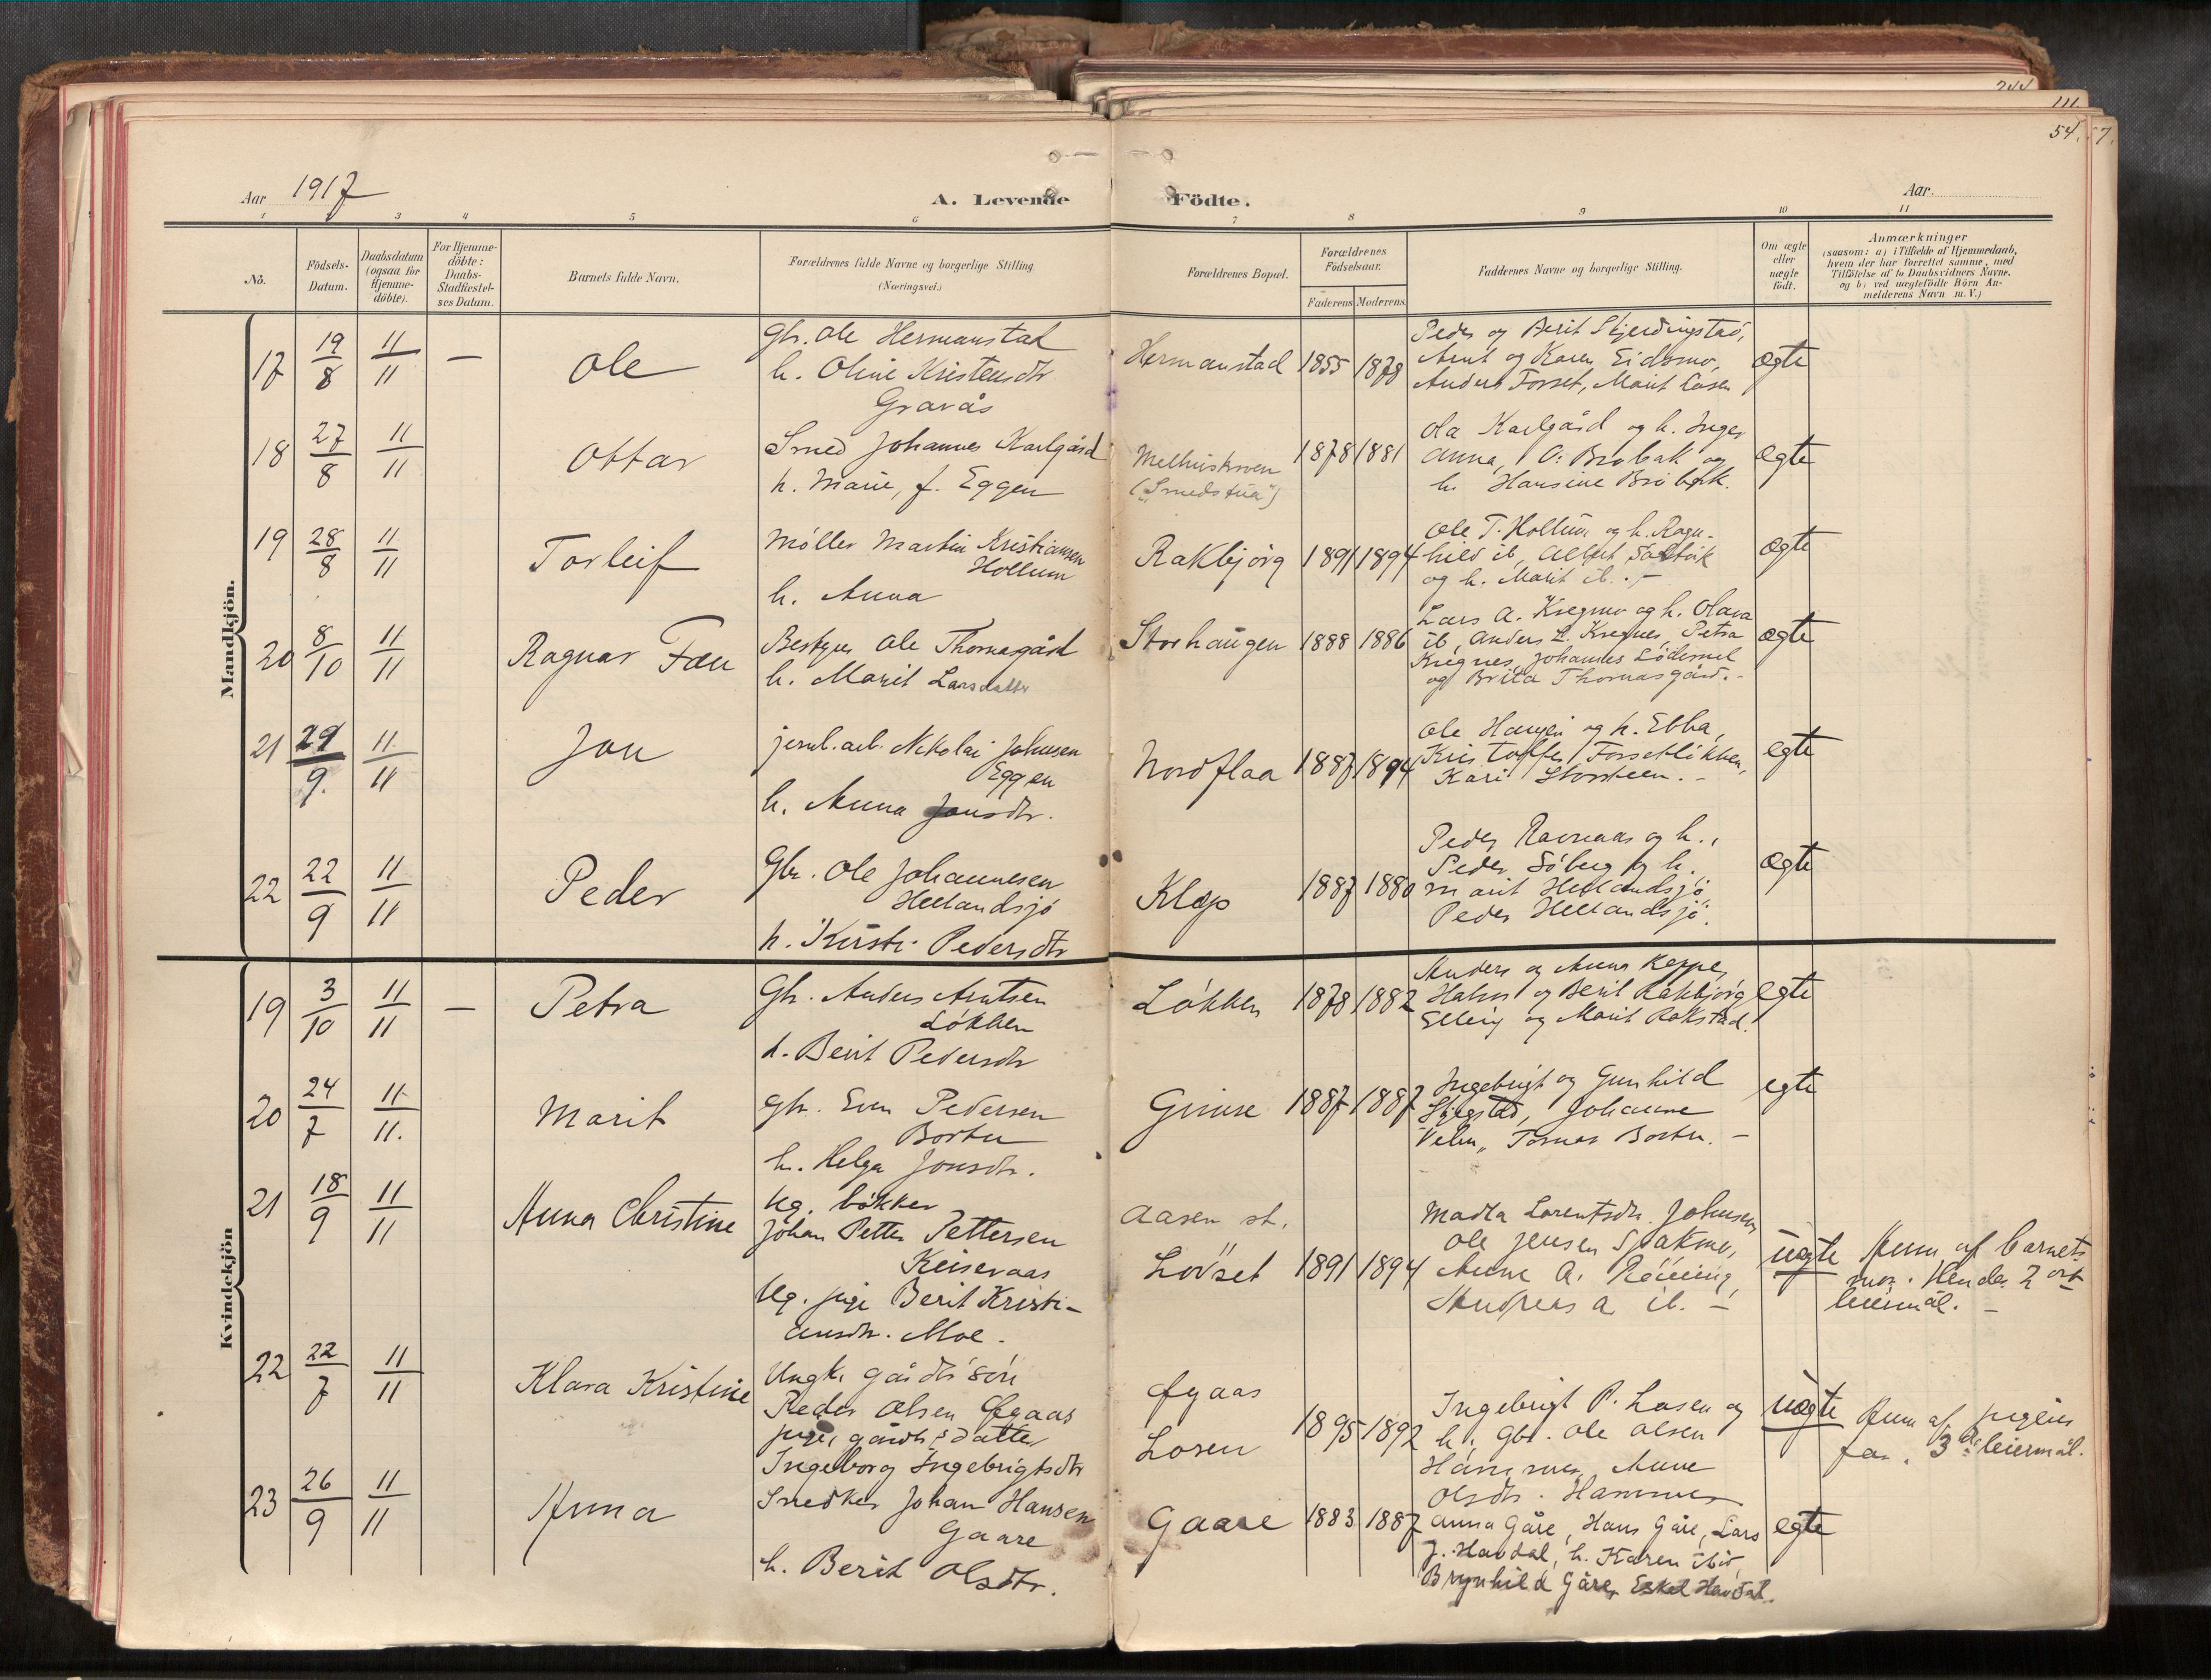 244
111.
54. 57.
Aar 1917
A. Levende Födte.
Aar.
1 2 3 4 5 6 7 8 9 10 11
No.
Födsels-Datum.
Daabsdatum (ogsaa for Hjemme-döbte).
For Hjemme-döbte: Daabs-Stadfæstel-ses Datum.
Barnets fulde Navn.
Forældrenes fulde Navne og borgerlige Stilling (Næringsvei.)
Forældrenes Bopæl.
Forældrenes Födselsaar.
Faderens Moderens
Faddernes Navne og borgerlige Stilling.
Om ægte eller uægte födt.
Anmærkninger
(saasom: a) i Tilfælde af Hjemmedaab,
hvem der har forrettet samme, med
Tilföielse af to Daabsvidners Navne.
og b) ved uægtefödte Börn An-
melderens Navn m. V.)
Mandkjön.
17 19/8 11/11 — Ole
Gbr. Ole Hermanstad
h. Oline Kristensdtr
Gravås
Hermanstad 1855 1878
Peder og Berit Skjerdingstad,
Arnt og Karen Eidsmo,
Anders Forset, Marit Losen
ægte
18 27/8 11/11 Ottar
Smed Johannes Karlgård
h. Marie, f. Eggen
Melhusknven
("Smedstua")
1878 1881
Ola Karlgård og h. Inger
Anna, O: Brobak og
h. Hansine Brobak.
ægte
19 28/8 11/11 Torleif
Möller Martin Kristiansen
Hollum
h. Anna
Rakbjörg 1891 1894
Ole T. Hollum og h. Ragn-
hild ib,
og h. Marit ib. . –
ægte
20 8/10 11/11 Ragnar
Bestyrer Ole Thomasgård
h. Marit Larsdatter
Storhaugen 1888 1886
Lars A. Kregnes og h. Olava
ib, Anders L. Kregnes, Petra
Kregnes, Johannes
og Brita Thomasgård. -
ægte
21 29/9. 11/11 Jon
jernb.arb. Nikolai Johnsen
Eggen
h. Anna Jonsdtr.
Nordflaa 1887 1894
Ole Haugen og h. Ebba,
Kristoffer Forsetlökken,
Kari Storsteen. -
egte
22 22/9 11/11 Peder
Gbr. Ole Johannesen
Hellandsjö
h. Kirsti Pedersdtr
Klæp 1887 1880
Peder Ravnaas og h.,
Peder Söberg og h.,
Marit Hellandsjö,
Peder Hellandsjö.
ægte
Kvindekjön
19 3/10 11/11 — Petra
Gbr. Anders Arntsen
Lökken
h. Berit Pedersdtr
Lökken 1878 1882
Anders og Anna Keppe,
Hans og Berit Rakbjörg
Elling og Marit Rakstad.
egte
20 24/7 11/11. Marit
Gbr. Even Pedersen
Borten
h. Helga Jonsdtr.
Gimse 1887 1887
Ingebrigt og Gunhild
Skjegstad, Johanne
Tomas Borten. –
egte
21 18/9 11/11 Anna Christine
Ug. bökker
Johan Petter Pettersen
Keiseraas
Ug. pige Berit Kristi-
ansdtr. Moe.
Aasen st.
Lövset 1891 1894
Lorentsdtr. Johnsen,
Ole Jensen Spakmo,
Anne A. Rönning,
Andreas A. ib. –
uægte
Anm. af barnets
mor. Hendes 2 det
leiermål. –
22 22/7 11/11 Klara Kristine
Ungk. gårdss'ön
Peder Olsen Øgaas
pige, gårds datter
Ingeborg Ingebrigtsdtr
Øgaas
Losen 1895 1892
Ingebrigt P. Losen og
h., gbr. Ole Olsen
Hammer, Anne
Olsdtr. Hammer
uægte
Anm af pigens
far. 3 die leiermål.
23 26/9 11/11 Anna
Snedker Johan Hansen
Gaare
h. Berit Olsdtr.
Gaare 1883 1887
Anna Gåre, Hans Gåre, Lars
J. Havdal, h. Karen ibid,
Brynhild Gåre, Eskel Havdal.
egte